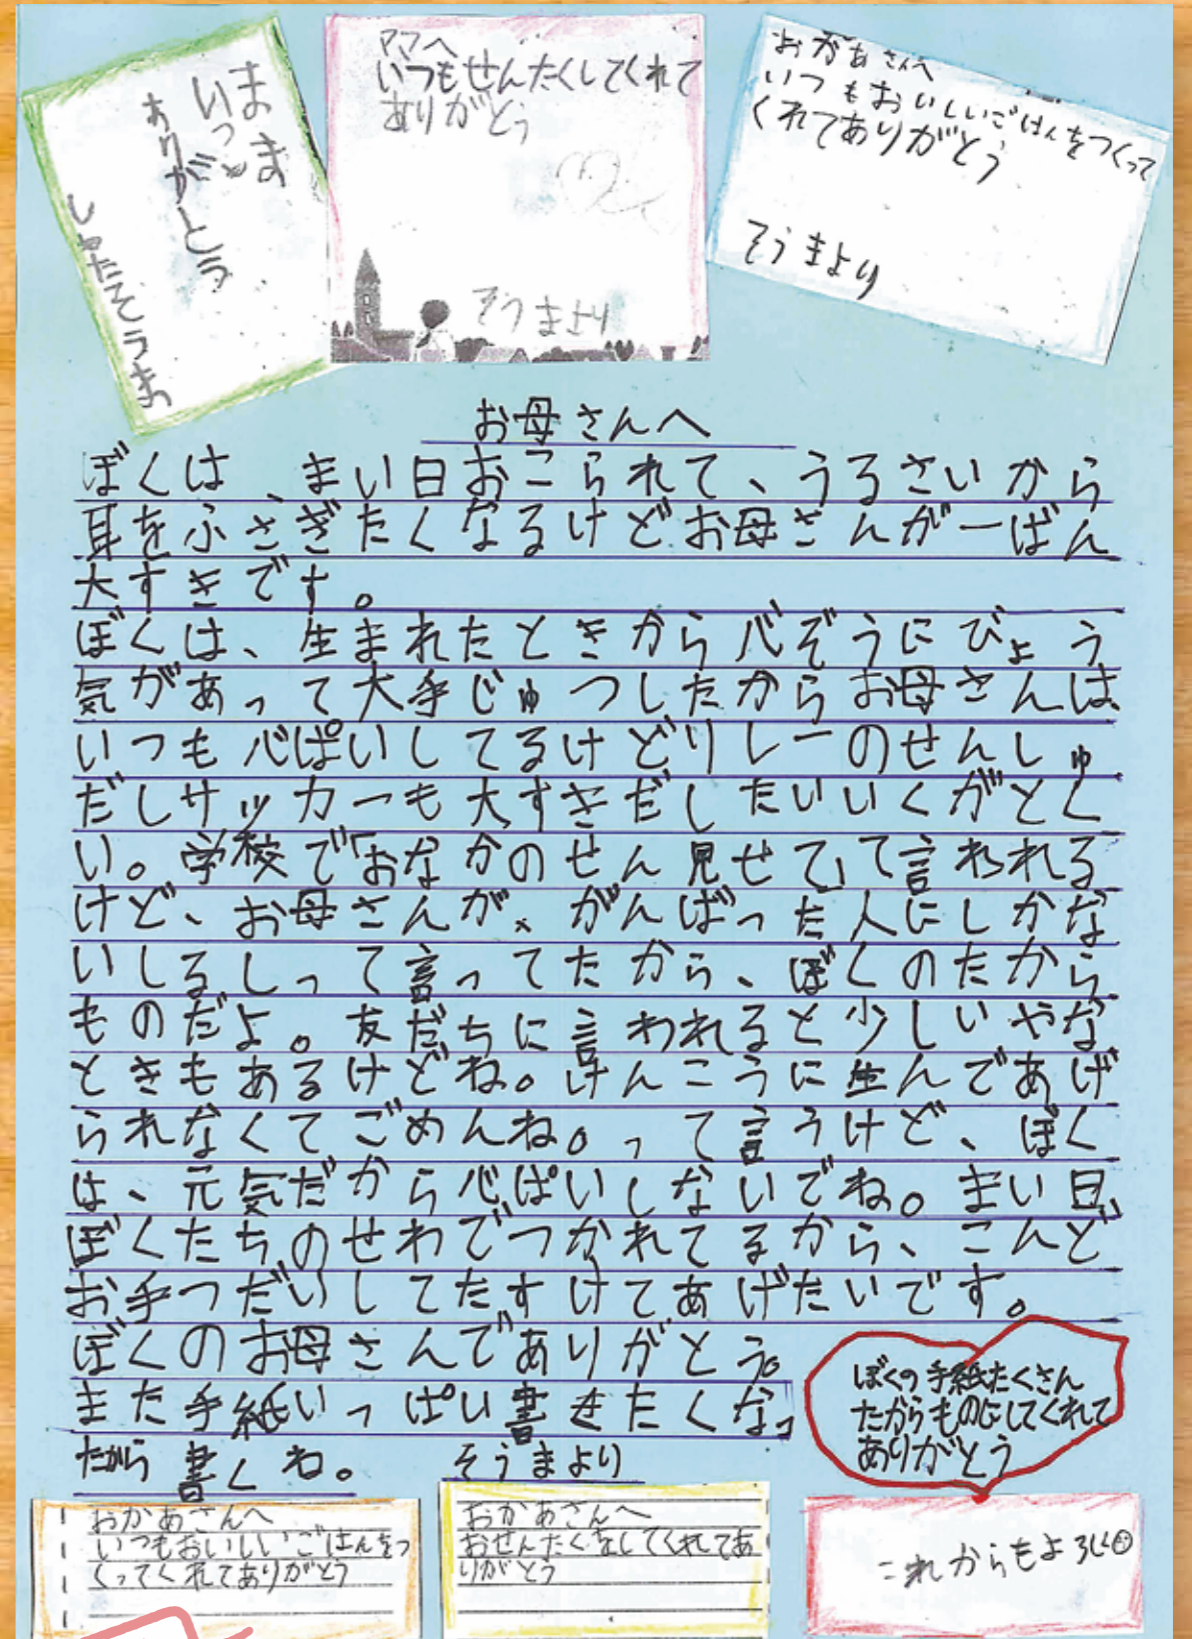 まま
いつも
ありがとう
しゅたそうま
ママへ
いつもせんたくしてくれて
ありがとう
そうまより
おかあさんへ
いつもおいしいごはんをつくって
くれてありがとう
そうまより
お母さんへ
ぼくは、まい日おこられて、うるさいから
耳をふさぎたくなるけどお母さんが一ばん
大すきです。
ぼくは、生まれたときから心ぞうにびょう
気があって大手じゅつしたからお母さんは、
いつも心ぱいしてるけどリレーのせんしゅ
だしサッカーも大すきだしたいいくがとく
い。学校で「おなかのせん見せて」って言われる
けど、お母さんが、がんばった人にしかな
いしるしって言ってたから、ぼくのたから
ものだよ。友だちに言われると少しいやな
ときもあるけどね。けんこうに生んであげ
られなくてごめんね。って言うけど、ぼく
は、元気だから心ぱいしないでね。まい日、
ぼくたちのせわでつかれてるから、こんど
お手つだいしてたすけてあげたいです。
ぼくのお母さんでありがとう。
また手紙いっぱい書きたくなっ
たから書くね。
そうまより
ぼくの手紙たくさん
たからものにしてくれて
ありがとう
おかあさんへ
いつもおいしいごはんをつ
くってくれてありがとう
おかあさんへ
おせんたくをしてくれてあ
りがとう
これからもよろしく